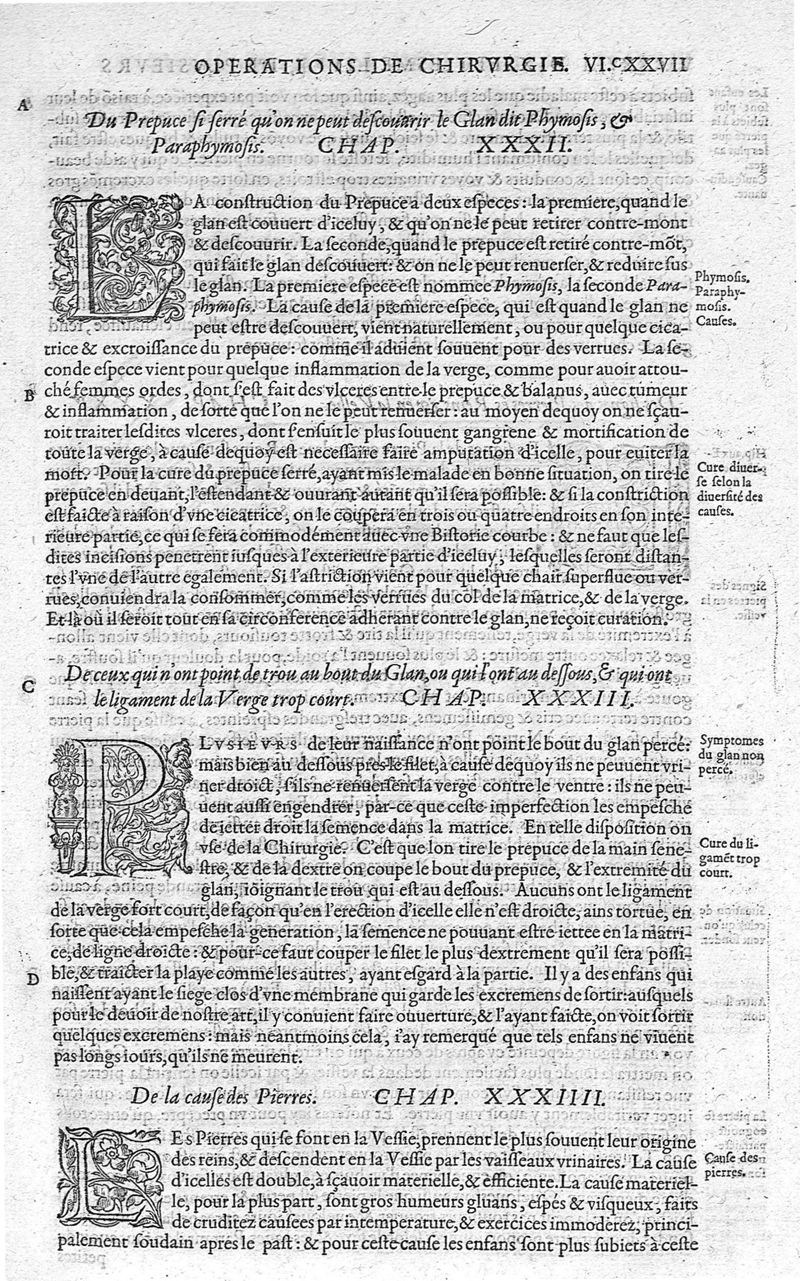 OPERATIONS DE CHIRVRGIE. VI.CXXVII
A
Du Prepuce si serré qu'on ne peut descouurir le Glan dit Phymosis, &
Paraphymosis. CHAP. XXXII.
LA construction du Prepuce a deux especes : la premiere, quand le
glan est couuert d'iceluy, & qu'on ne le peut retirer contre-mont
& descouurir. La seconde, quand le prepuce est retiré contre-mõt,
qui fait le glan descouuert: & on ne le peut renuerser, & reduire sus
le glan. La premiere espece est nommee Phymosis, la seconde Para-
phymosis. La cause de la premiere espece, qui est quand le glan ne
peut estre descouuert, vient naturellement, ou pour quelque cica-
trice & excroissance du prepuce : comme il aduient souuent pour des verrues. La se-
conde espece vient pour quelque inflammation de la verge, comme pour auoir attou-
ché femmes ordes, dont s'est fait des vlceres entre le prepuce & balanus, auec tumeur
& inflammation, de sorte que l'on ne le peut renuerser : au moyen dequoy on ne sçau-
roit traiter lesdites vlceres, dont s'ensuit le plus souuent gangrene & mortification de
toute la verge, à cause dequoy est necessaire faire amputation d'icelle, pour euiter la
mort. Pour la cure du prepuce serré, ayant mis le malade en bonne situation, on tire le
prepuce en deuant, l'estendant & ouurant autant qu'il sera possible: & si la constriction
est faicte à raison d'vne cicatrice, on le coupera en trois ou quatre endroits en son inte-
rieure partie, ce qui se fera commodément auec vne Bistorie courbe : & ne faut que les-
dites incisions penetrent iusques à l'exterieure partie d'iceluy, lesquelles seront distan-
tes l'vne de l'autre egalement. Si l'astriction vient pour quelque chair superflue ou ver-
rues, conuiendra la consommer, comme les verrues du col de la matrice, & de la verge.
Et là où il seroit tout en sa circonference adherant contre le glan, ne reçoit curation.
Phymosis.
Paraphy-
mosis.
Causes.
B
Cure diuer-
se selon la
diuersité des
causes.
C
De ceux qui n'ont point de trou au bout du Glan, ou qui l'ont au dessous, & qui ont
le ligament de la Verge trop court. CHAP. XXXIII.
PLVSIEVRS de leur naissance n'ont point le bout du glan percé:
mais bien au dessous pres le filet, à cause dequoy ils ne peuuent vri-
ner droict, s'ils ne renuersent la verge contre le ventre : ils ne peu-
uent aussi engendrer, par-ce que ceste imperfection les empesche
de ietter droit la semence dans la matrice. En telle disposition on
vse de la Chirurgie. C'est que lon tire le prepuce de la main sene-
stre, & de la dextre on coupe le bout du prepuce, & l'extremité du
glan, ioignant le trou qui est au dessous. Aucuns ont le ligament
de la verge fort court, de façon qu'en l'erection d'icelle elle n'est droicte, ains tortue, en
sorte que cela empesche la generation, la semence ne pouuant estre iettee en la matri-
ce, de ligne droicte : & pour ce faut couper le filet le plus dextrement qu'il sera possi-
ble, & traicter la playe comme les autres, ayant esgard à la partie. Il y a des enfans qui
naissent ayant le siege clos d'vne membrane qui garde les excremens de sortir: ausquels
pour le deuoir de nostre art, il y conuient faire ouuerture, & l'ayant faicte, on voit sortir
quelques excremens : mais neantmoins cela, i'ay remarqué que tels enfans ne viuent
pas longs iours, qu'ils ne meurent.
Symptomes
du glan non
percé.
Cure du li-
gamẽt trop
court.
D
De la cause des Pierres. CHAP. XXXIIII.
LEs Pierres qui se font en la Vessie, prennent le plus souuent leur origine
des reins, & descendent en la Vessie par les vaisseaux vrinaires. La cause
d'icelles est double, à sçauoir materielle, & efficiente. La cause materiel-
le, pour la plus part, sont gros humeurs gluans, espés & visqueux, faits
de cruditez causees par intemperature, & exercices immoderez, princi-
palement soudain apres le past : & pour ceste cause les enfans sont plus subiets à ceste
Cause des
pierres.